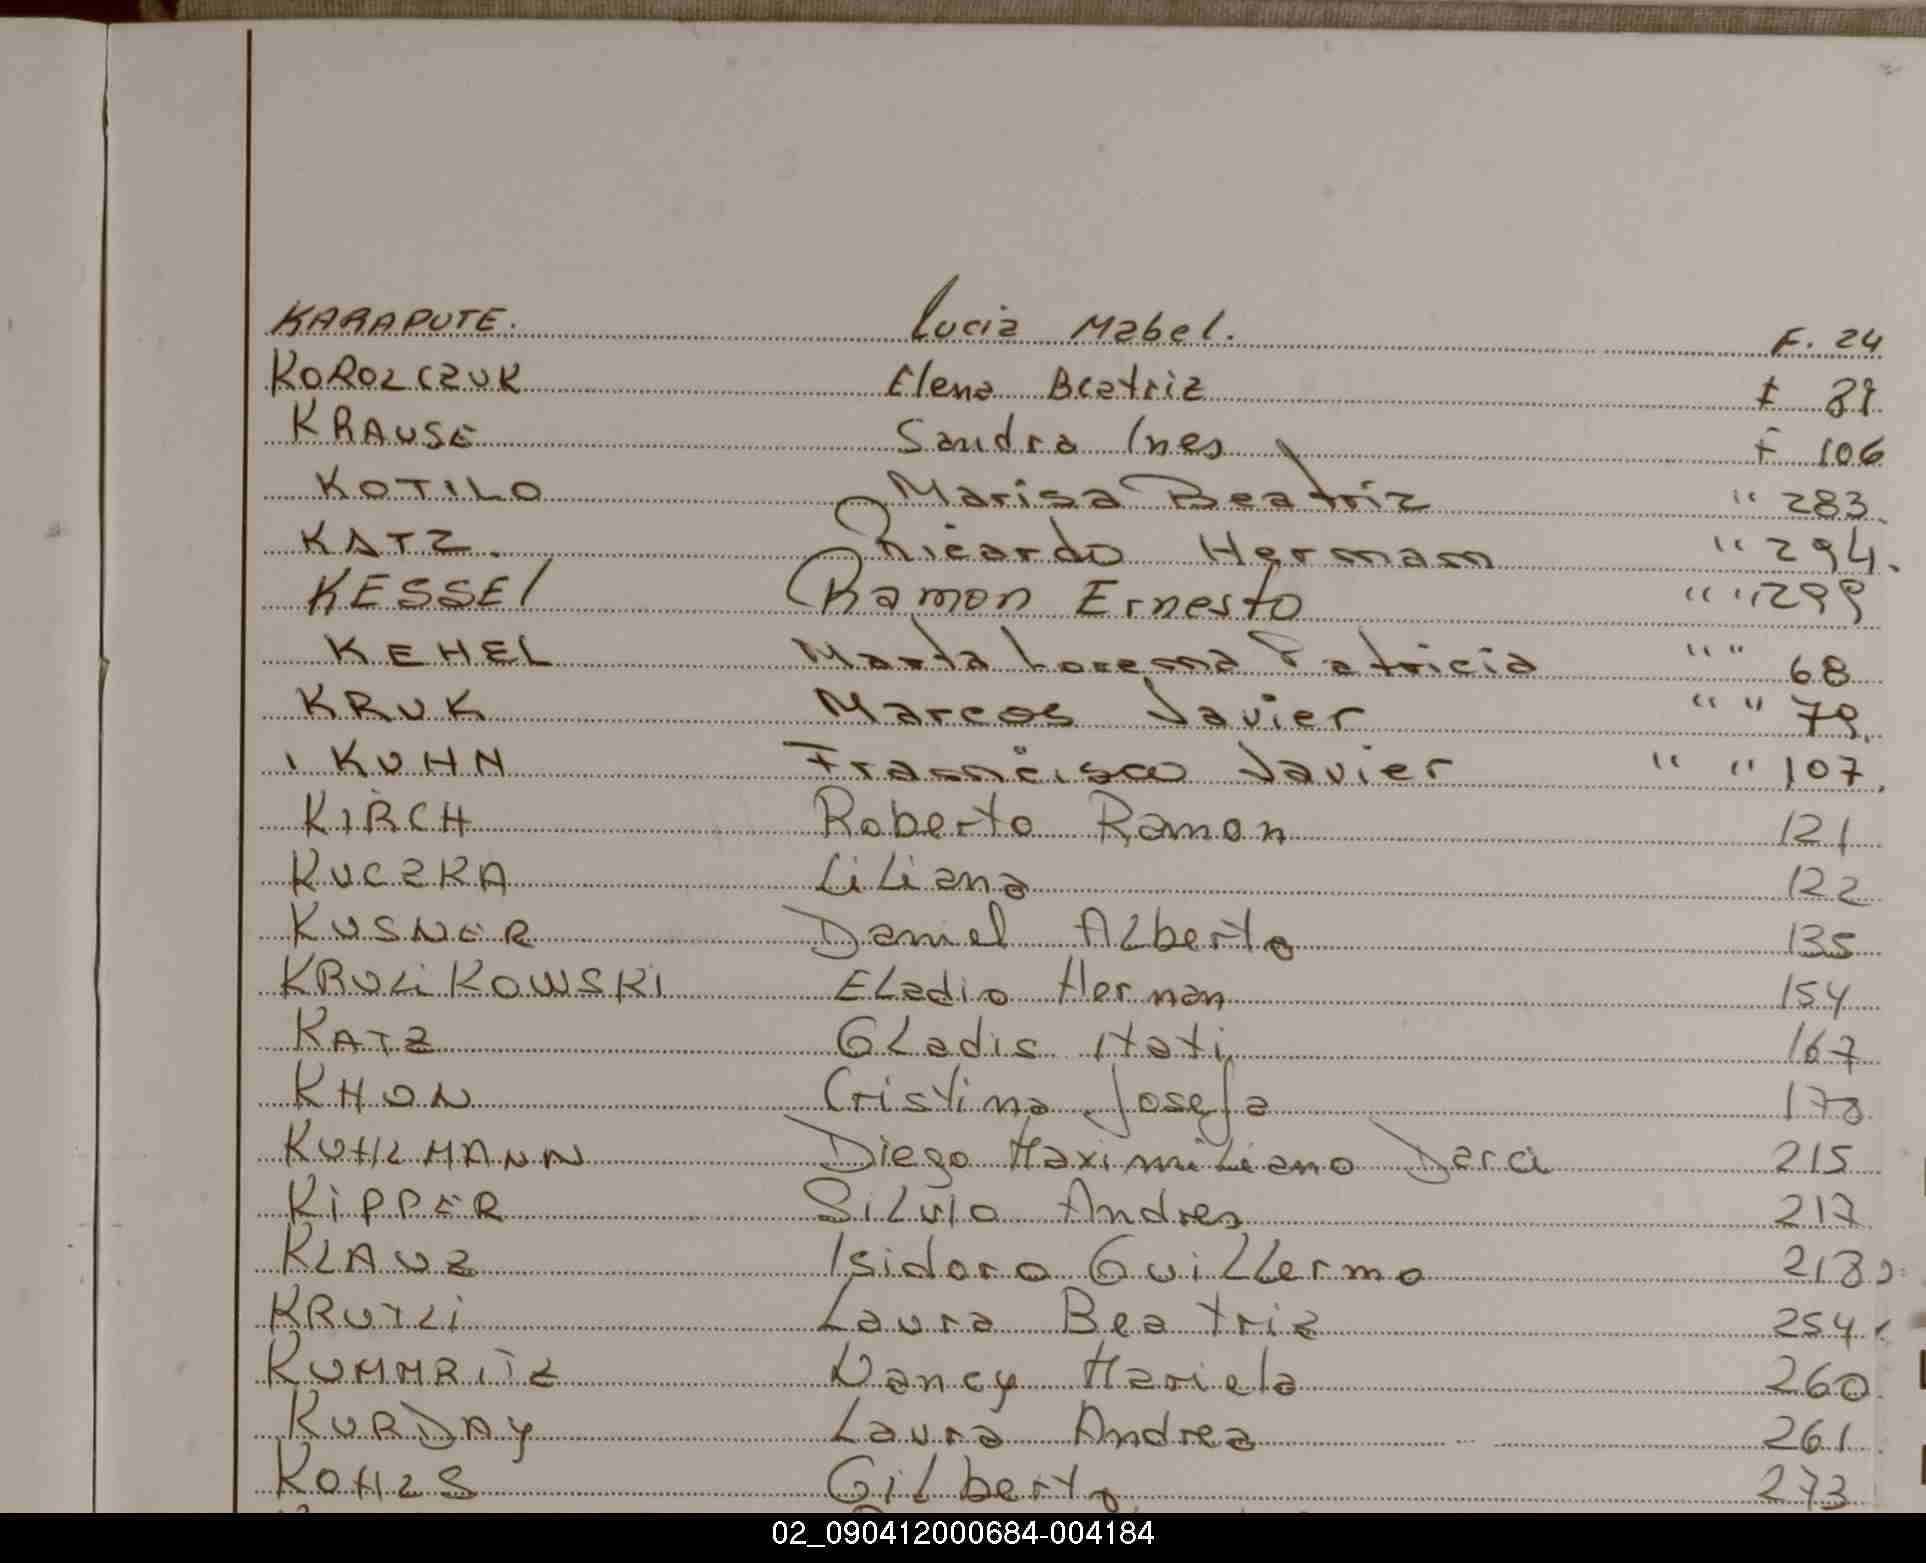 KARAPUTE. Lucia Mabel. F. 24
KOROLCZUK Elena Beatriz F
KRAUSE Sandra Ines F 106
KOTILO Marisa Beatriz " 283.
KATZ. Ricardo Hermam " 294.
KESSEl Ramon Ernesto " " 299
KEHEL Marta Lorena Patricia " " 68
KRUK Marcos Javier " " 79.
KUHN Francisco Javier " " 107.
KIRCH Roberto Ramon 121
KUCZKA Liliana 122
KUSNER Daniel Alberto 135
KRULiKOWSKI Eladio Hernan 154
KATZ Gladis Itati 167
KHON Cristina Josefa
KUHLMANN Diego Maximiliano Darci 215
KiPPER Silvio Andres 217
KLAUZ Isidoro Guillermo 218
KRUTLi Laura Beatriz 254
KUMMRiTZ Nancy Mariela 260
KURDAY Laura Andrea 261
KOHLS Gilberto 273
02_090412000684-004184